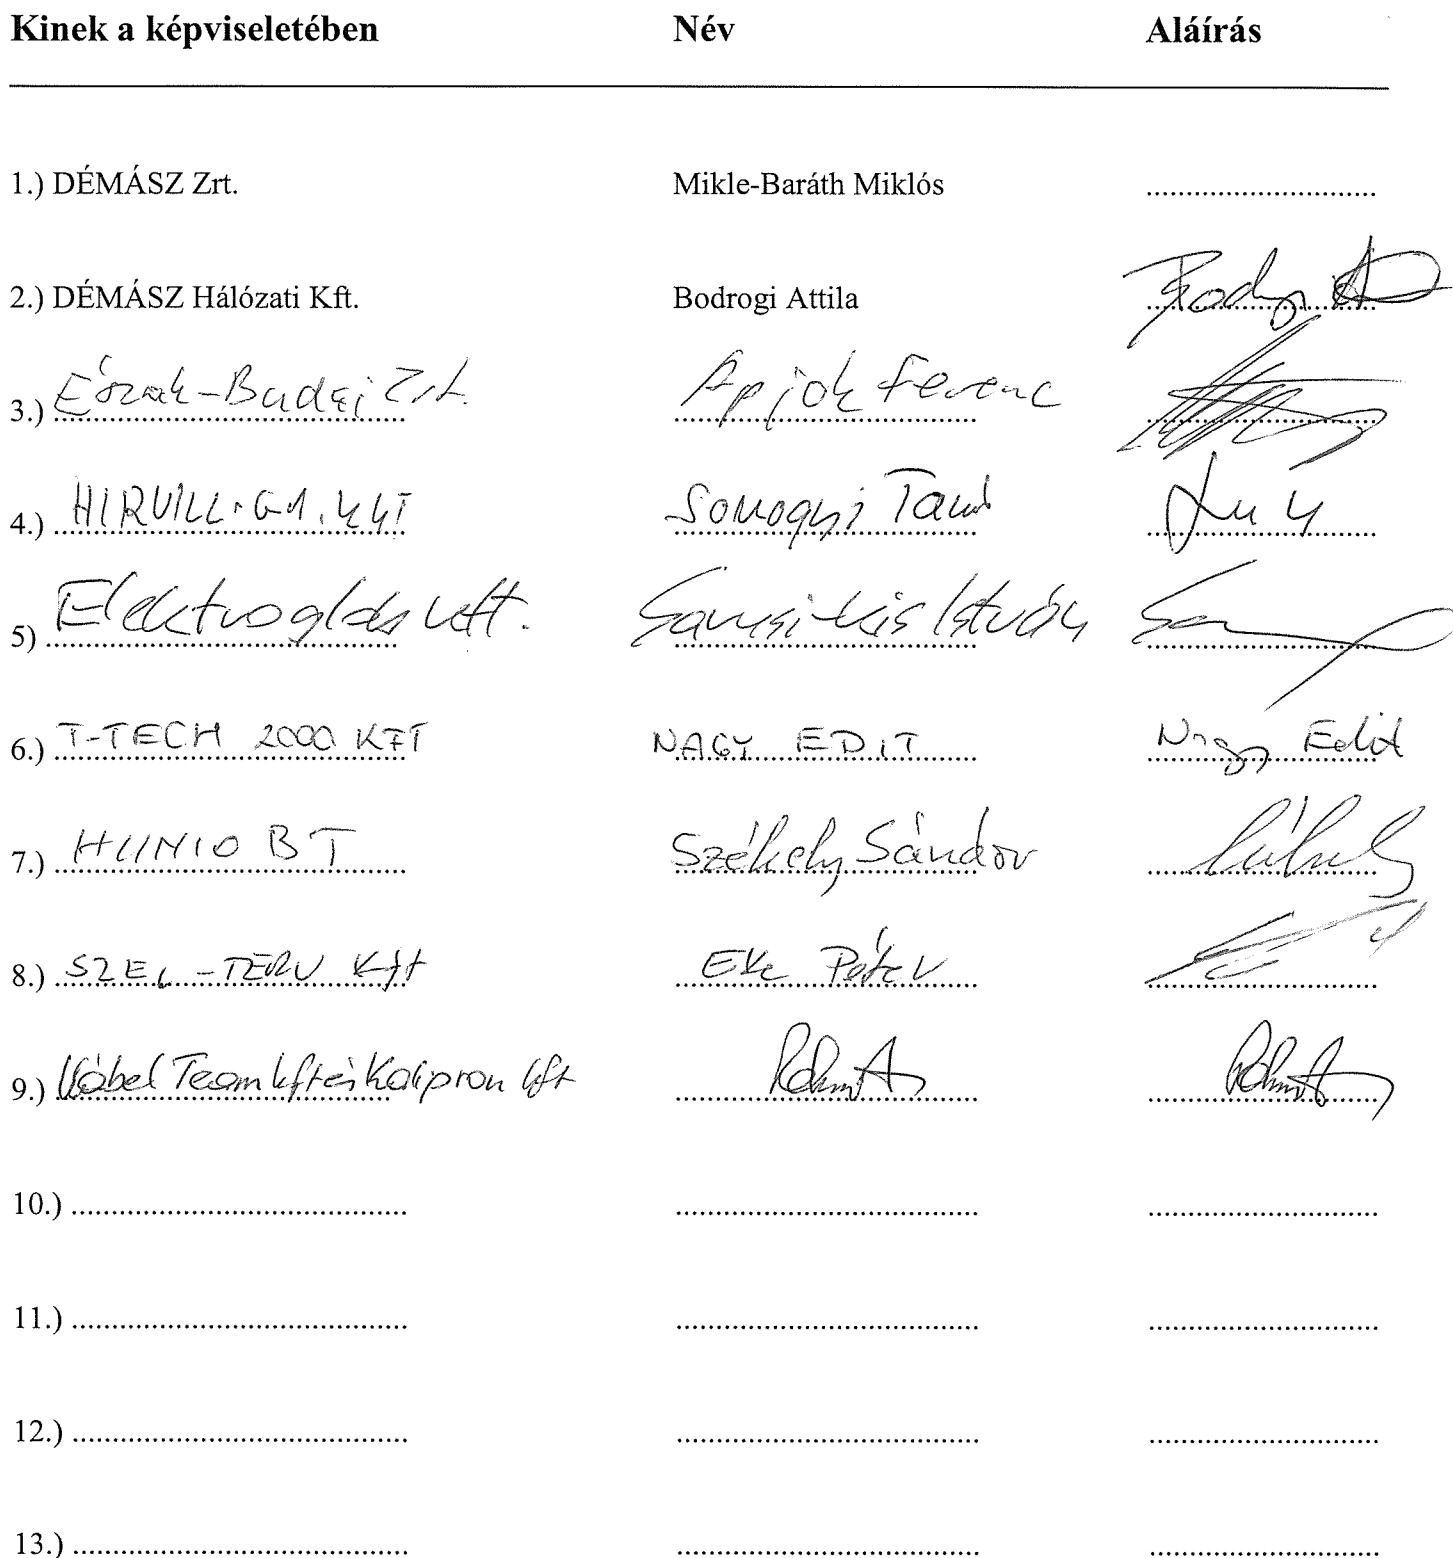 Kinek a képviseletében Név Aláírás
1.) DÉMÁSZ Zrt. Mikle-Baráth Miklós ............................
2.) DÉMÁSZ Hálózati Kft. Bodrogi Attila
3.) Észak-Budai Zrt. Apjok Ferenc
4.) HIRVILL Somogyi
5) Elektroglob Kft. István
6.) T-TECH 2000 KFT NAGY EDIT Nagy Edit
7.) HUNIO BT Székely Sándor
8.) SZEL-TERV Kft Eke Péter
9.) Kábel Team kft és Kalipron kft
10.) ......................................... ..................................... ............................
11.) ......................................... ..................................... ............................
12.) ......................................... ..................................... ............................
13.) ......................................... ..................................... ............................